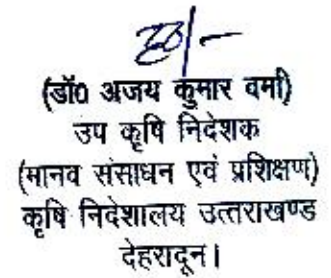 ह०/-
(डॉ० अजय कुमार वर्मा)
उप कृषि निदेशक
(मानव संसाधन एवं प्रशिक्षण)
कृषि निदेशालय उत्तराखण्ड
देहरादून।